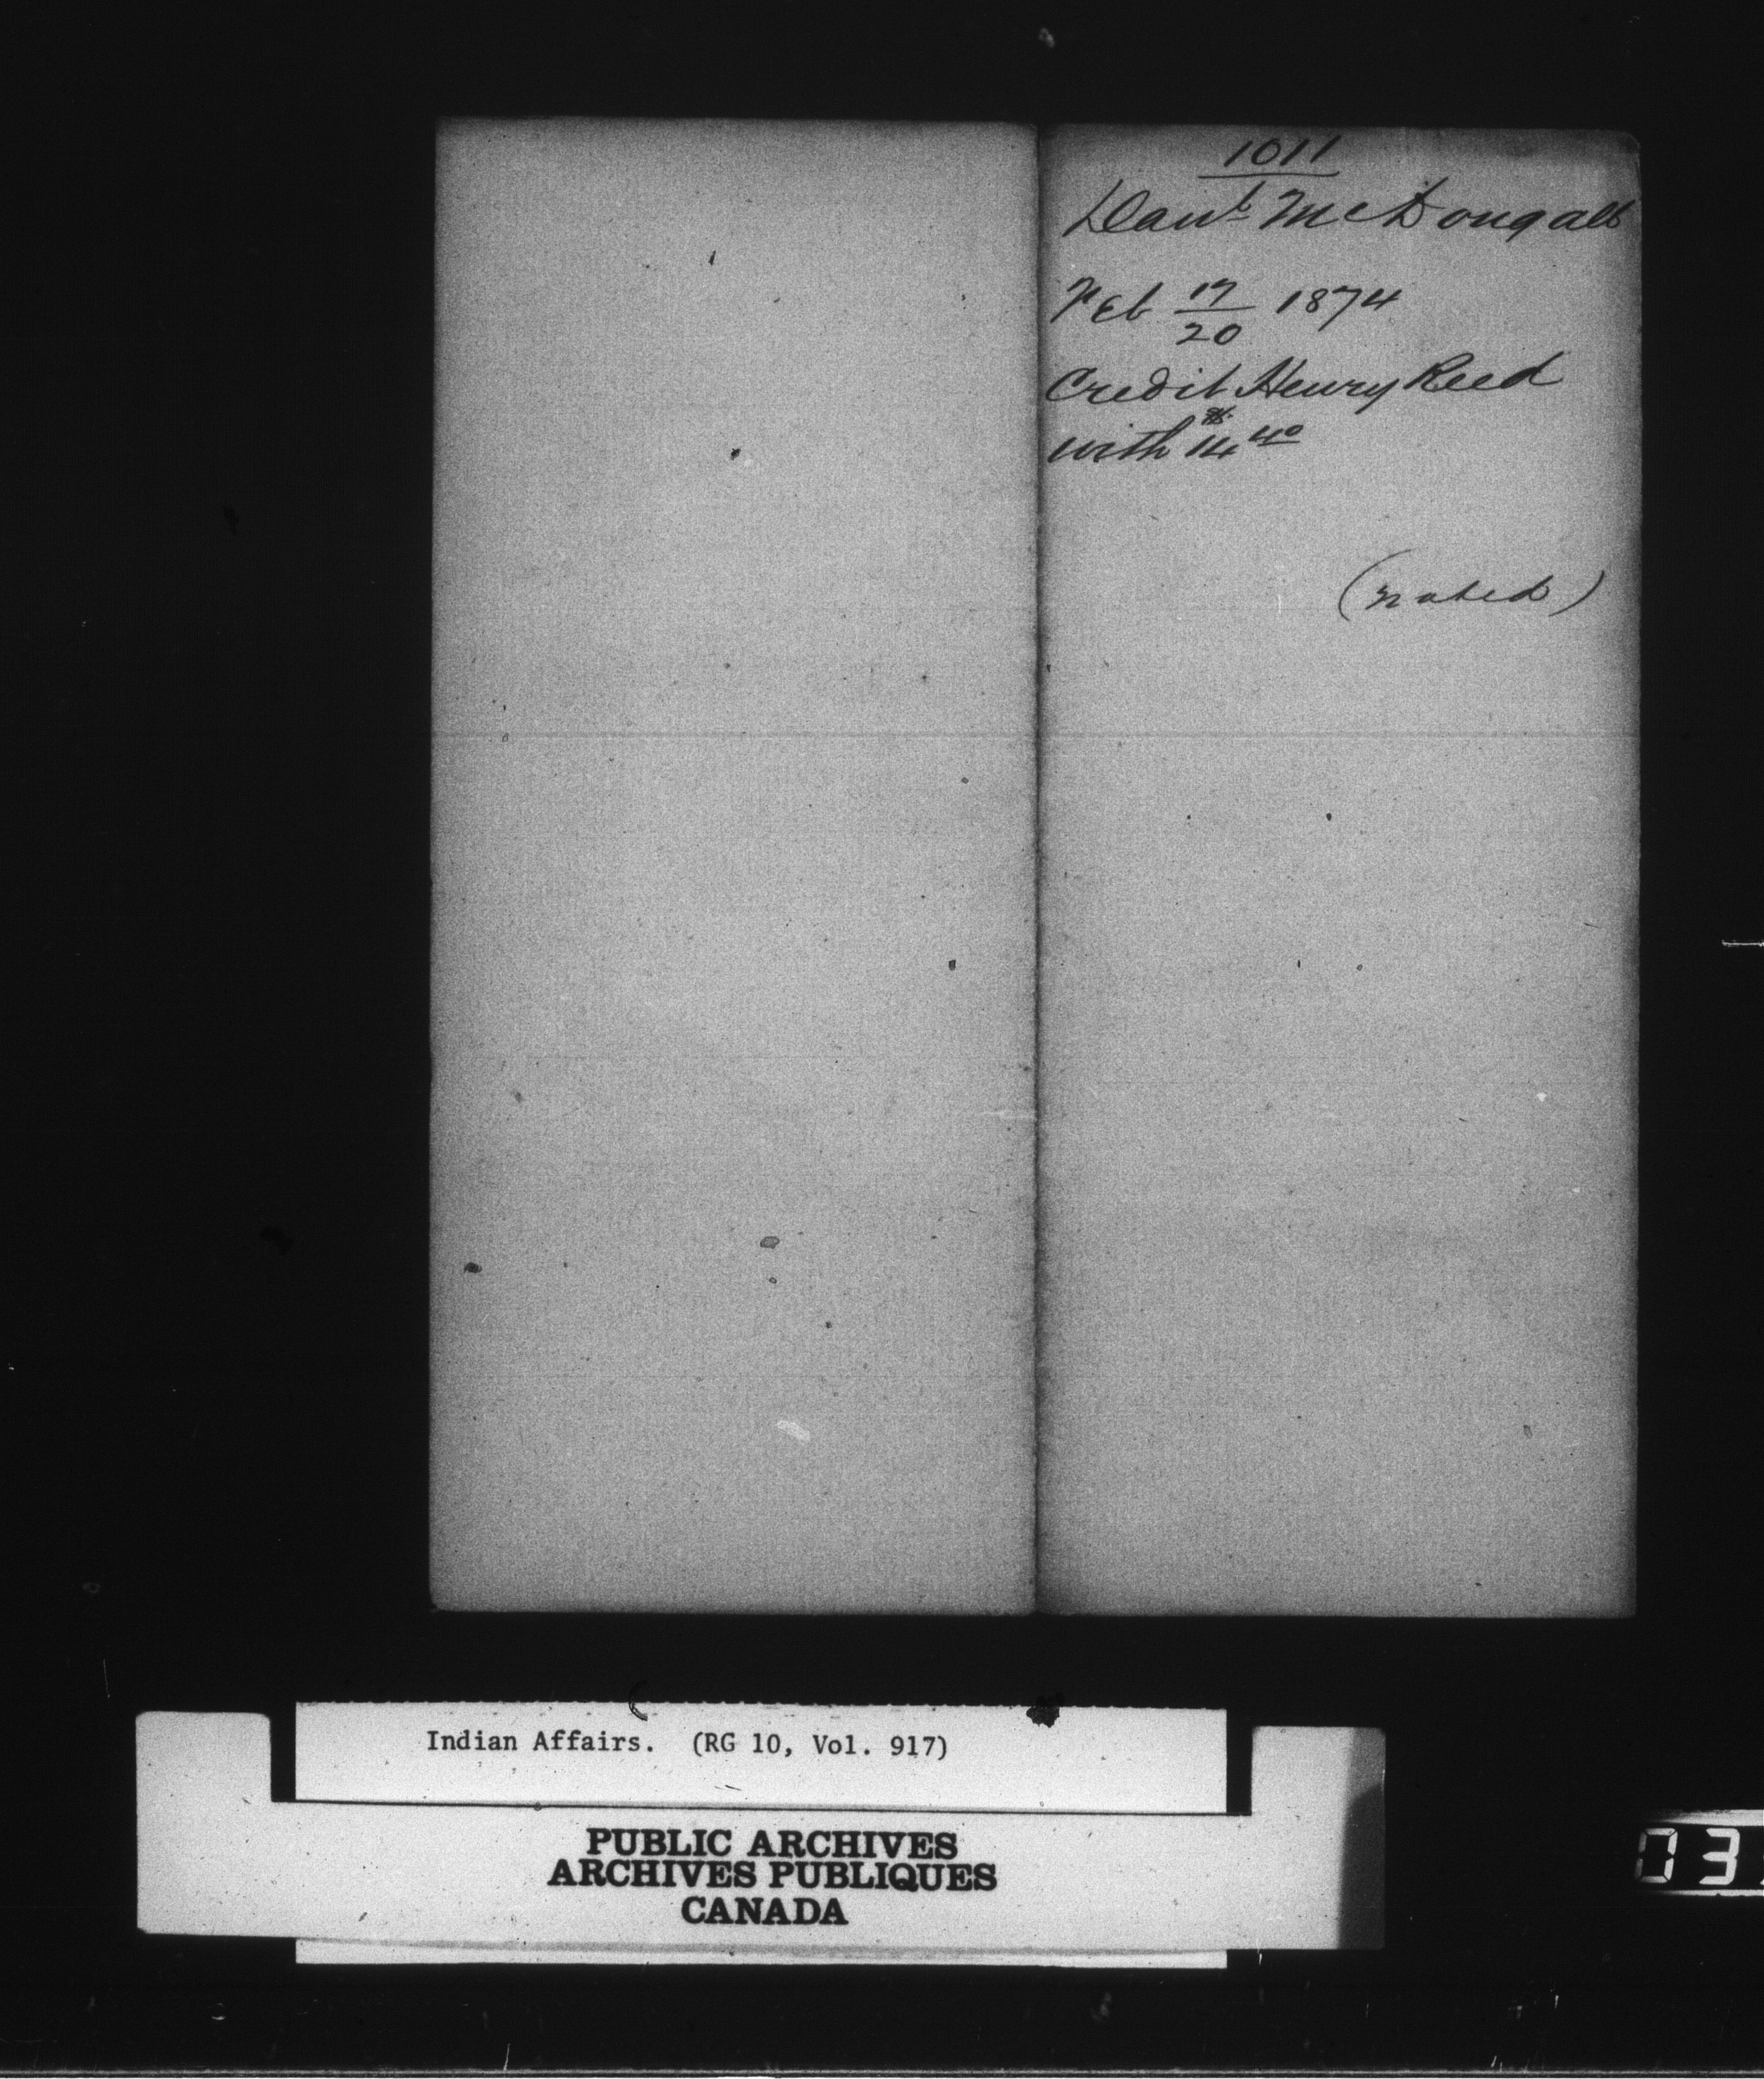 1011
Danl McDougall
Feb 17/20 1874
Credit Henry Reed
with $14.40
(noted)
Indian Affairs. (RG 10, Vol. 917)
PUBLIC ARCHIVES
ARCHIVES PUBLIQUES
CANADA
03